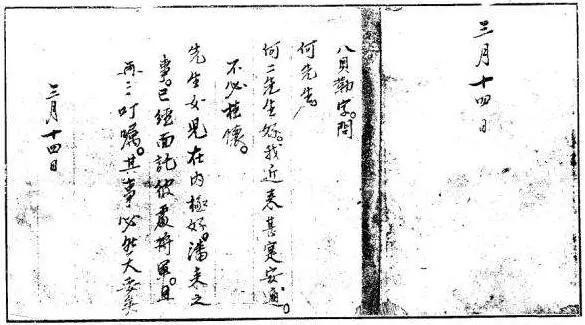 三月十四日
八貝勒字。問
何先生。
何二先生好。我近來甚寔安適。
不必挂懷。
先生女兒在内極好。潘耒之
事。已經面託彼處將軍。且
再三叮囑。其事必然大妥矣
三月十四日